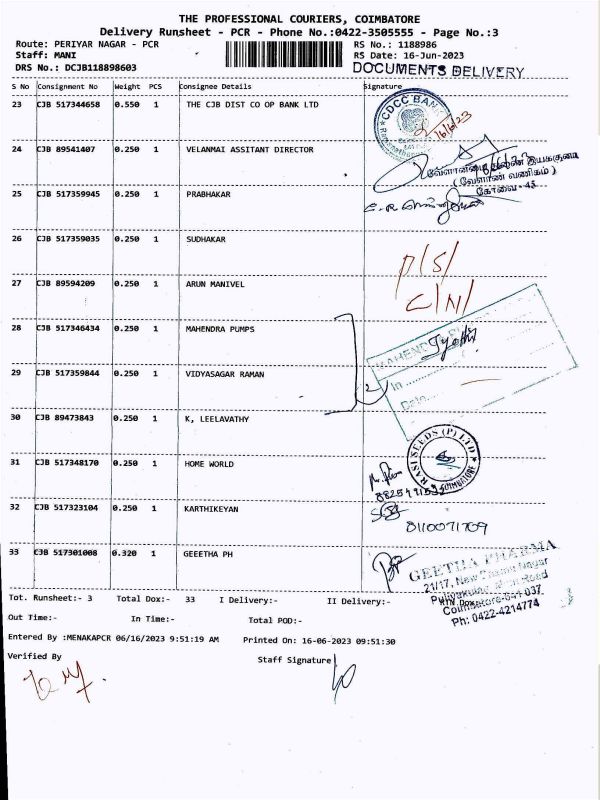 THE PROFESSIONAL COURIERS, COIMBATORE
Delivery Runsheet - PCR - Phone No.:0422-3505555 - Page No.:3
Route: PERIYAR NAGAR - PCR RS No.: 1188986
Staff: MANI RS Date: 16-Jun-2023
DRS No.: DCJB118898603 DOCUMENTS DELIVERY
S No Consignment No Weight PCS Consignee Details Signature
23 CJB 517344658 0.550 1 THE CJB DIST CO OP BANK LTD
CDCC BANK
16/6/23
24 CJB 89541407 0.250 1 VELANMAI ASSITANT DIRECTOR
வேளாண்மை துணை இயக்குநர்
( வேளாண் வணிகம் )
கோவை - 45
25 CJB 517359945 0.250 1 PRABHAKAR
26 CJB 517359035 0.250 1 SUDHAKAR
P/S/
C/N/
27 CJB 89594209 0.250 1 ARUN MANIVEL
28 CJB 517346434 0.250 1 MAHENDRA PUMPS
Jyothi
In
Date
29 CJB 517359844 0.250 1 VIDYASAGAR RAMAN
2
30 CJB 89473843 0.250 1 K, LEELAVATHY
RASI SEEDS (P) LTD
COIMBATORE
31 CJB 517348170 0.250 1 HOME WORLD
32 CJB 517323104 0.250 1 KARTHIKEYAN
8110071709
33 CJB 517301008 0.320 1 GEEETHA PH
GEETHA PHARMA
21/17, New
Road
Coimbatore-641 037
Ph: 0422-4214774
Tot. Runsheet:- 3 Total Dox:- 33 I Delivery:- II Delivery:-
Out Time:- In Time:- Total POD:-
Entered By :MENAKAPCR 06/16/2023 9:51:19 AM Printed On: 16-06-2023 09:51:30
Verified By Staff Signature